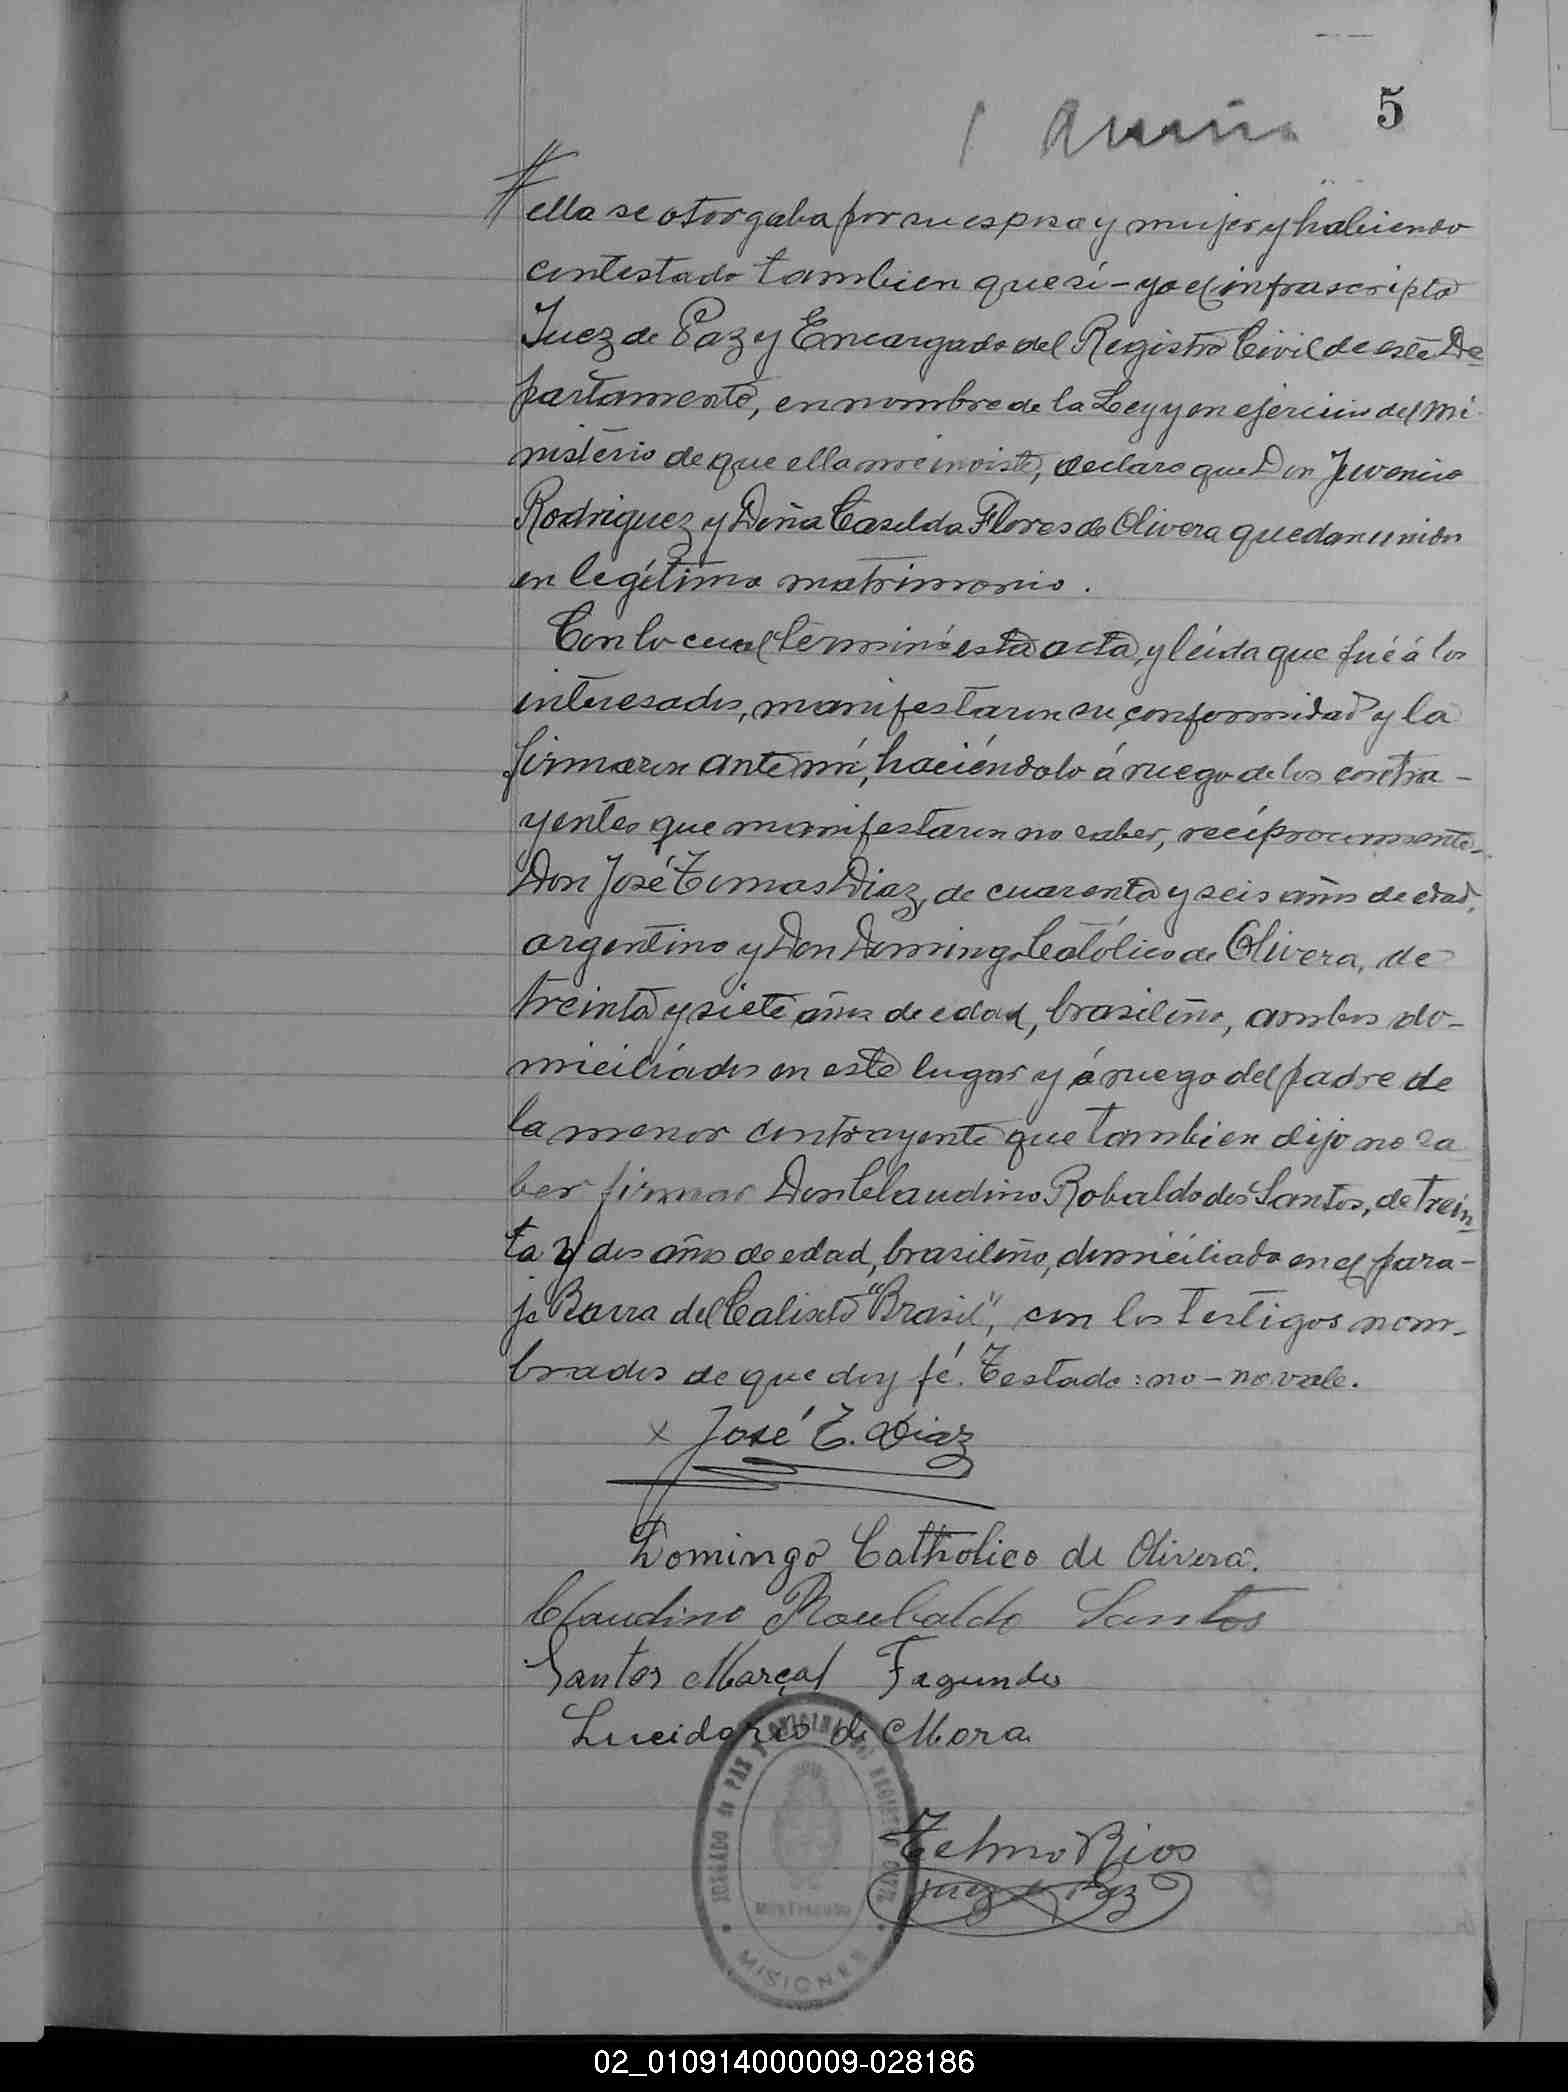 5
ella se otorgaba por su esposa y mujer y habiendo
contestado tambien que sí - yo el infrascripto
Juez de Paz y Encargado del Registro Civil de este De
partamento, en nombre de la Ley y en ejercicio del mi
nisterio de que ella me inviste, declaro que Don Juvencio
Rodriguez y Doña Casilda Flores de Olivera quedan unidos
en legítimo matrimonio.
Con lo cual terminó esta acta, y leída que fué á los
interesados, manifestaron su conformidad y la
firmaron ante mí, haciéndolo á ruego de los contra-
yentes que manifestaron no saber, recíprocamente-
Don José Tomas Diaz, de cuarenta y seis años de edad,
argentino y Don Domingo Católico de Olivera, de
treinta y siete años de edad, brasileño, ambos do-
miciliados en este lugar y á ruego del padre de
la menor contrayente que tambien dijo no sa
ber firmar Don Claudino Robaldo dos Santos, de trein
ta y dos años de edad, brasileño, domiciliado en el para-
je Barra del Calixto "Brasil", con los testigos nom-
brados de que doy fé. Testado: no - no vale.
x José T. Diaz
Domingo Catholico de Olivera.
Claudino Roubaldo Santos
Santos Marçal Fagundes
Lucidorio de Mora
Telmo Rios
Juez de Paz
JUZGADO de PAZ y OFICINA del REGISTRO CIVIL
MISIONES
02_010914000009-028186